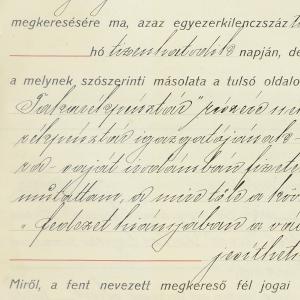 megkeresésére ma, azaz egyezerkilenczszáz
hó tizenhatodik napján, de
a melynek szószerinti másolata a tulsó oldalo
Takarékpénztár" részére
rékpénztár igazgatójának
saját irodámban fizeté
mutattam, a mire tőle a köv
„fedezet hiányában a vá
Miről, a fent nevezett megkereső fél jogai